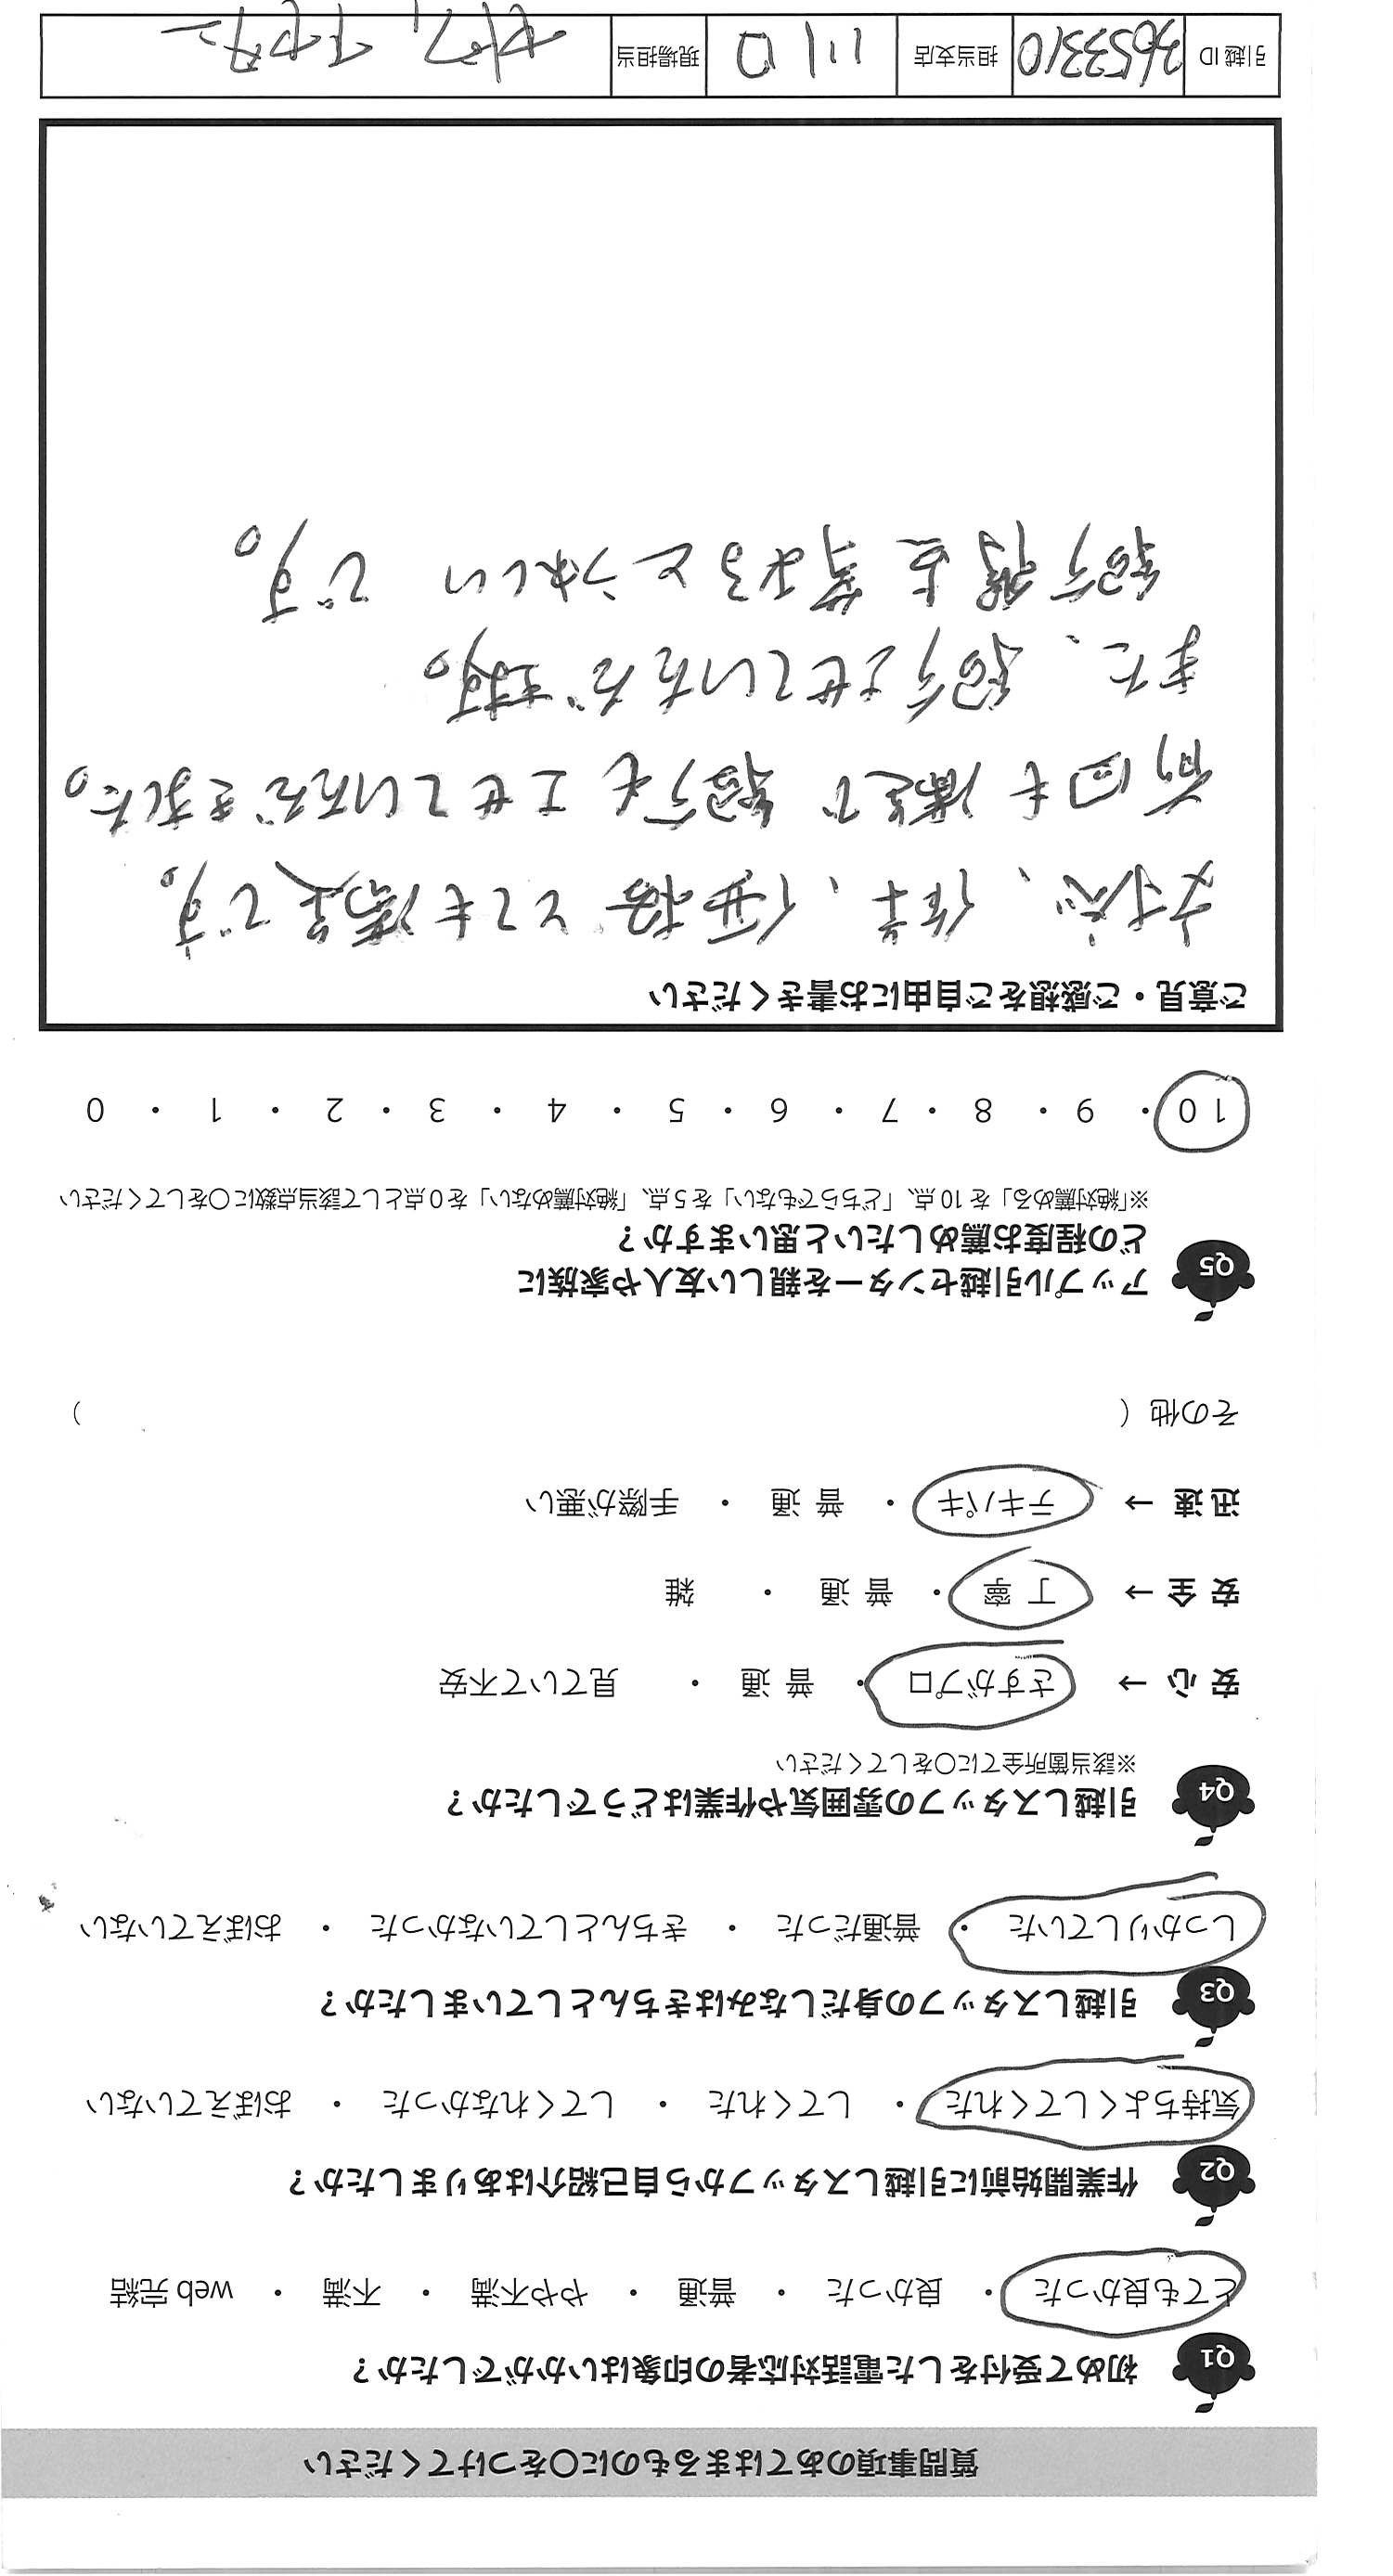 質問事項のあてはまるものに〇をつけてください
Q1 初めて受付をした電話対応者の印象はいかがでしたか？
とても良かった ・ 良かった ・ 普通 ・ やや不満 ・ 不満 ・ web 完結
Q2 作業開始前に引越しスタッフから自己紹介はありましたか？
気持ちよくしてくれた ・ してくれた ・ してくれなかった ・ おぼえていない
Q3 引越しスタッフの身だしなみはきちんとしていましたか？
しっかりしていた ・ 普通だった ・ きちんとしていなかった ・ おぼえていない
Q4 引越しスタッフの雰囲気や作業はどうでしたか？
※該当箇所全てに〇をしてください
安 心 → さすがプロ ・ 普 通 ・ 見ていて不安
安 全 → 丁 寧 ・ 普 通 ・ 雑
迅 速 → テキパキ ・ 普 通 ・ 手際が悪い
その他（ ）
Q5 アップル引越センターを親しい友人や家族に
どの程度お薦めしたいと思いますか？
※「絶対薦める」を 10 点、「どちらでもない」を 5 点、「絶対薦めない」を 0 点として該当点数に〇をしてください
10 ・ 9 ・ 8 ・ 7 ・ 6 ・ 5 ・ 4 ・ 3 ・ 2 ・ 1 ・ 0
ご意見・ご感想をご自由にお書きください
対応、作業、価格とても満足です。
前回も満足で紹介もさせていただきました。
また、紹介させていただきます。
紹介料上等するとうれしいです。
引越 ID 3653310 担当支店 川口 現場担当